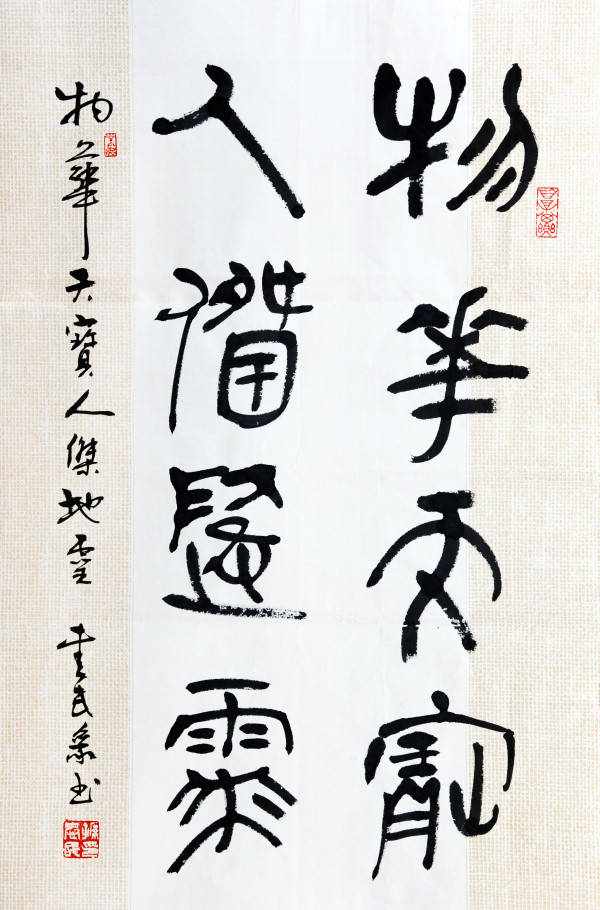 物華天寶
人傑地靈
物華天寶人傑地靈 书